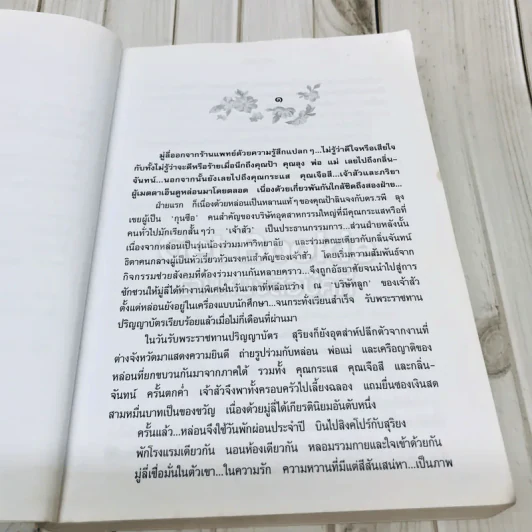 ๑
มู่ลี่ออกจากร้านแพทย์ด้วยความรู้สึกแปลกๆ...ไม่รู้ว่าดีใจหรือเสียใจ
กับทั้งไม่รู้ว่าจะดีหรือร้ายเมื่อนึกถึงคุณป้า คุณลุง พ่อ แม่ เลยไปถึงกลิ่น-
จันทน์...นอกจากนั้นยังเลยไปถึงคุณกระแส คุณเจือสี...เจ้าสัวและภริยา
ผู้เมตตาเอ็นดูหล่อนมาโดยตลอด เนื่องด้วยเกี่ยวพันกันใกล้ชิดถึงสองฝ่าย...
ฝ่ายแรก ก็เนื่องด้วยหล่อนเป็นหลานแท้ๆ ของคุณป้าลินจงกับดร.รพี ลุง
เขยผู้เป็น 'กุนซือ' คนสำคัญของบริษัทอุตสาหกรรมใหญ่ที่มีคุณกระแสหรือที่
คนทั่วไปมักเรียกสั้นๆ ว่า 'เจ้าสัว' เป็นประธานกรรมการ...ส่วนฝ่ายหลังนั้น
เนื่องจากหล่อนเป็นรุ่นน้องร่วมมหาวิทยาลัย และร่วมคณะเดียวกับกลิ่นจันทน์
ธิดาคนกลางผู้เป็นหัวเรี่ยวหัวแรงคนสำคัญของเจ้าสัว โดยเริ่มความสัมพันธ์จาก
กิจกรรมช่วยสังคมที่ต้องร่วมงานกันหลายคราว...จึงถูกอัธยาศัยจนนำไปสู่การ
ชักชวนให้มู่ลี่ได้ทำงานพิเศษในวันเวลาที่หล่อนว่าง ณ 'บริษัทลูก' ของเจ้าสัว
ตั้งแต่หล่อนยังอยู่ในเครื่องแบบนักศึกษา...จนกระทั่งเรียนสำเร็จ รับพระราชทาน
ปริญญาบัตรเรียบร้อยแล้วเมื่อไม่กี่เดือนที่ผ่านมา
ในวันรับพระราชทานปริญญาบัตร สุริยงก็ยังอุตส่าห์ปลีกตัวจากงานที่
ต่างจังหวัดมาแสดงความยินดี ถ่ายรูปร่วมกับหล่อน พ่อแม่ และเครือญาติของ
หล่อนที่ยกขบวนกันมาจากภาคใต้ รวมทั้ง คุณกระแส คุณเจือสี และกลิ่น-
จันทน์ ครั้นตกค่ำ เจ้าสัวจึงพาทั้งครอบครัวไปเลี้ยงฉลอง แถมยื่นซองเงินสด
สามหมื่นบาทเป็นของขวัญ เนื่องด้วยมู่ลี่ได้เกียรตินิยมอันดับหนึ่ง
ครั้นแล้ว...หล่อนจึงใช้วันพักผ่อนประจำปี บินไปสิงคโปร์กับสุริยง
พักโรงแรมเดียวกัน นอนห้องเดียวกัน หลอมรวมกายและใจเข้าด้วยกัน
มู่ลี่เชื่อมั่นในตัวเขา...ในความรัก ความหวานที่มีแต่สีสันเสน่หา...เป็นภาพ